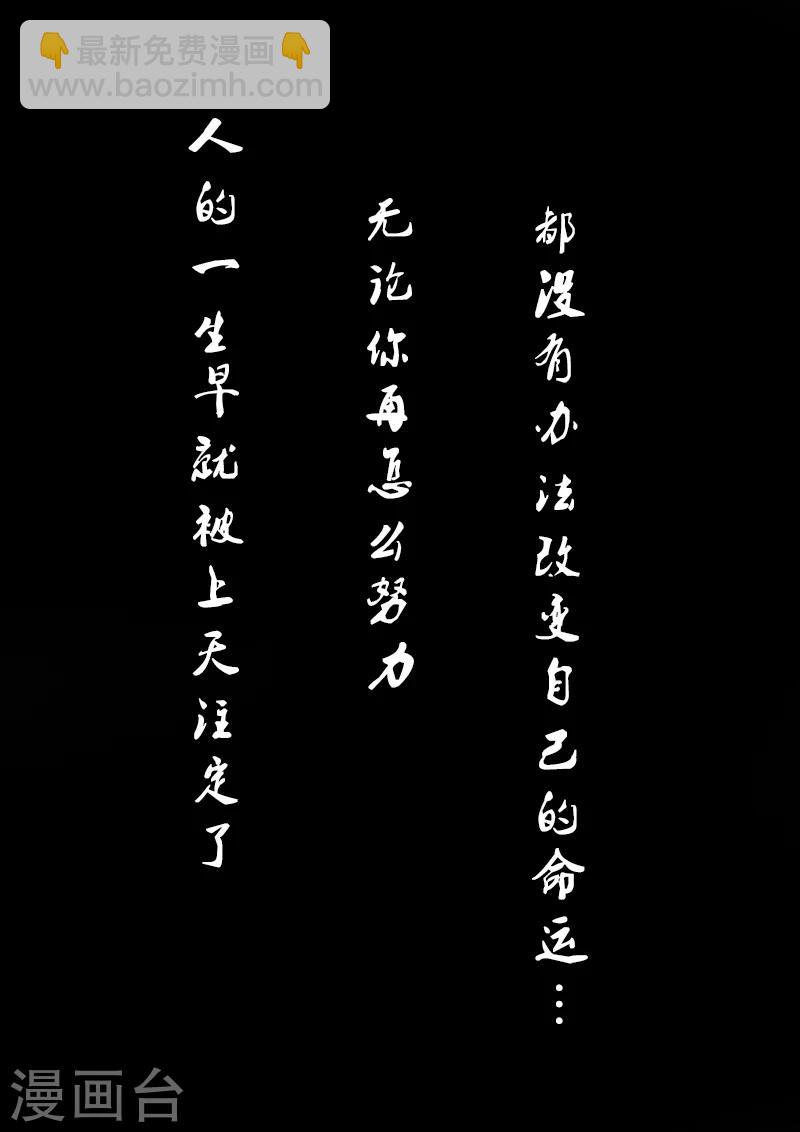 👇最新免费漫画👇
www.baozimh.com
人的一生早就被上天注定了
无论你再怎么努力
都没有办法改变自己的命运…
漫画台